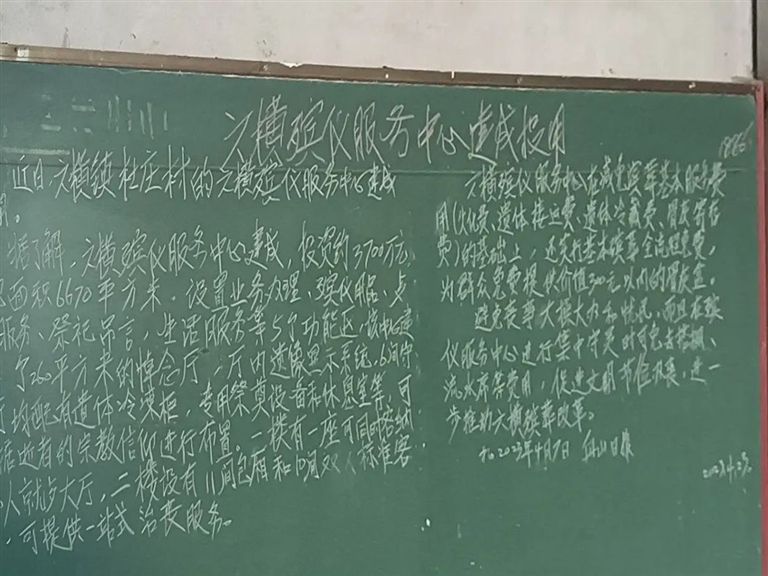 六横殡仪服务中心建成投用
近日,六横镇杜庄村的六横殡仪服务中心建成
据了解,六横殡仪服务中心建成,投资约3700万元
面积6670平方米.设置业务办理、殡仪用品、
服务、祭祀吊唁、生活服务等5个功能区,该中心建
了200平方米的悼念厅,厅内遗像显示系统,6间守
均配有遗体冷藏柜,专用祭奠设备和休息室等,可
逝者的宗教信仰进行布置.一楼有一座可同时容纳
人就歺大厅,二楼设有11间包厢和10间双人标准客
可提供一站式治丧服务。
六横殡仪服务中心在减免殡葬基本服务费
用(火化费、遗体接运费、遗体冷藏费、骨灰寄存
费)的基础上,还实行基本殡葬全流程免费,
对群众免费提供价值300元以内的骨灰盒,
避免丧事大操大办和忧民,而且在殡
仪服务中心进行集中守灵时可免去搭棚、
流水席等费用,促进文明节俭办丧,进一
步推动六横殡葬改革。
2023年4月7日 舟山日报
2023.4.23.